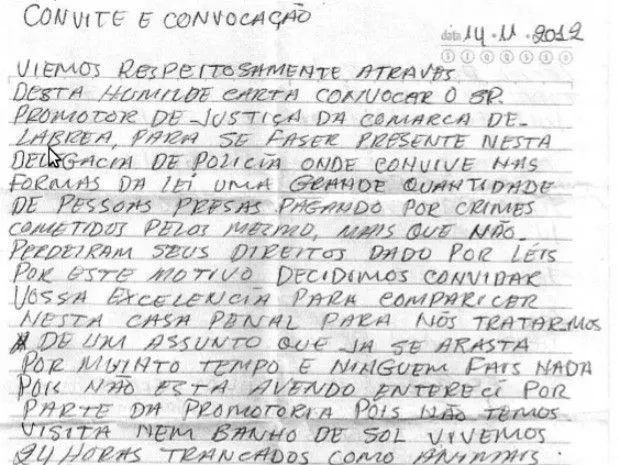 CONVITE E CONVOCAÇÃO
data 14 · 11 · 2012
D S T Q Q S S
VIEMOS RESPEITOSAMENTE ATRAVES
DESTA HUMILDE CARTA CONVOCAR O SR.
PROMOTOR DE JUSTIÇA DA COMARCA DE
LABREA, PARA SE FASER PRESENTE NESTA
DELEGACIA DE POLICIA ONDE CONVIVE NAS
FORMAS DA LEI UMA GRANDE QUANTIDADE
DE PESSOAS PRESAS PAGANDO POR CRIMES
COMETIDOS PELOS MESMO, MAIS QUE NÃO
PERDEIRAM SEUS DIREITOS DADO POR LÉIS
POR ESTE MOTIVO DECIDIMOS CONVIDAR
VOSSA EXCELENCIA PARA COMPARICER
NESTA CASA PENAL PARA NÓS TRATARMOS
DE UM ASSUNTO QUE JA SE ARASTA
POR MUINTO TEMPO E NINGUEM FAIS NADA
POIS NÃO ESTA AVENDO ENTERECI POR
PARTE DA PROMOTORIA POIS NÃO TEMOS
VISITA NEM BANHO DE SOL VIVEMOS
24 HORAS TRANCADOS COMO ANIMAIS.